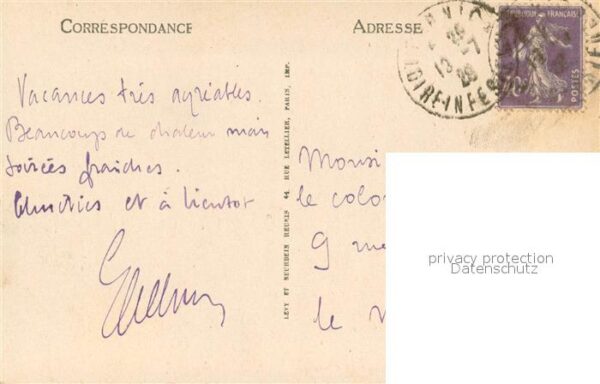 CORRESPONDANCE
ADRESSE
RÉPUBLIQUE FRANÇAISE
POSTES
LOIRE-INFRE
Vacances très agréables.
Beaucoup de chaleur mais
soirées fraiches.
Amitiés et à bientot
LÉVY ET NEURDEIN RÉUNIS 44, RUE LETELLIER, PARIS, IMP.
Monsi
le colo
9 rue
le
privacy protection
Datenschutz